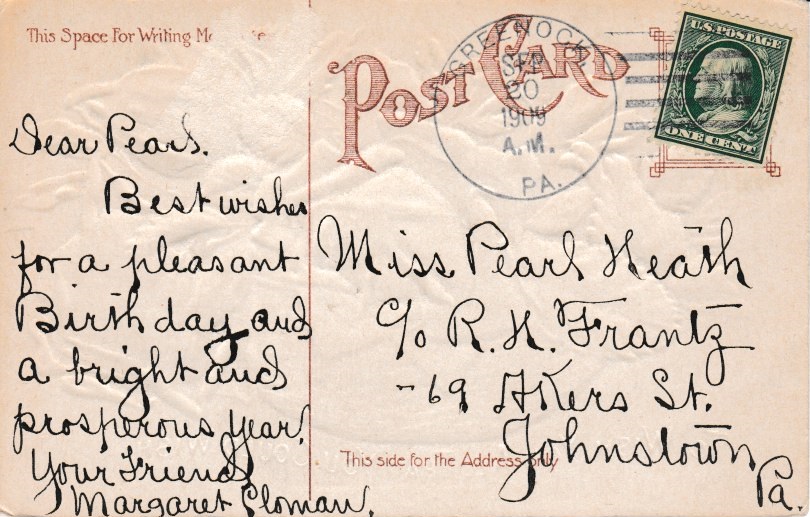 This Space For Writing
POST CARD
GREENOCK,
SEP
20
1909
A.M.
PA.
U.S. POSTAGE
ONE CENT
Dear Pearl.
Best wishes
for a pleasant
Birthday and
a bright and
prosperous year.
Your Friend
Margaret
Miss Pearl Heath
c/o R. H. Frantz
-69 Akers St.
Johnstown
Pa.
This side for the Address only